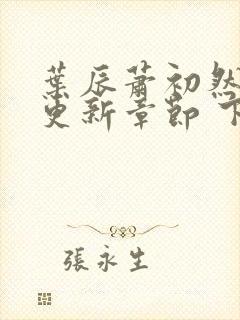 葉辰蕭初然
更新章節 下
張永生